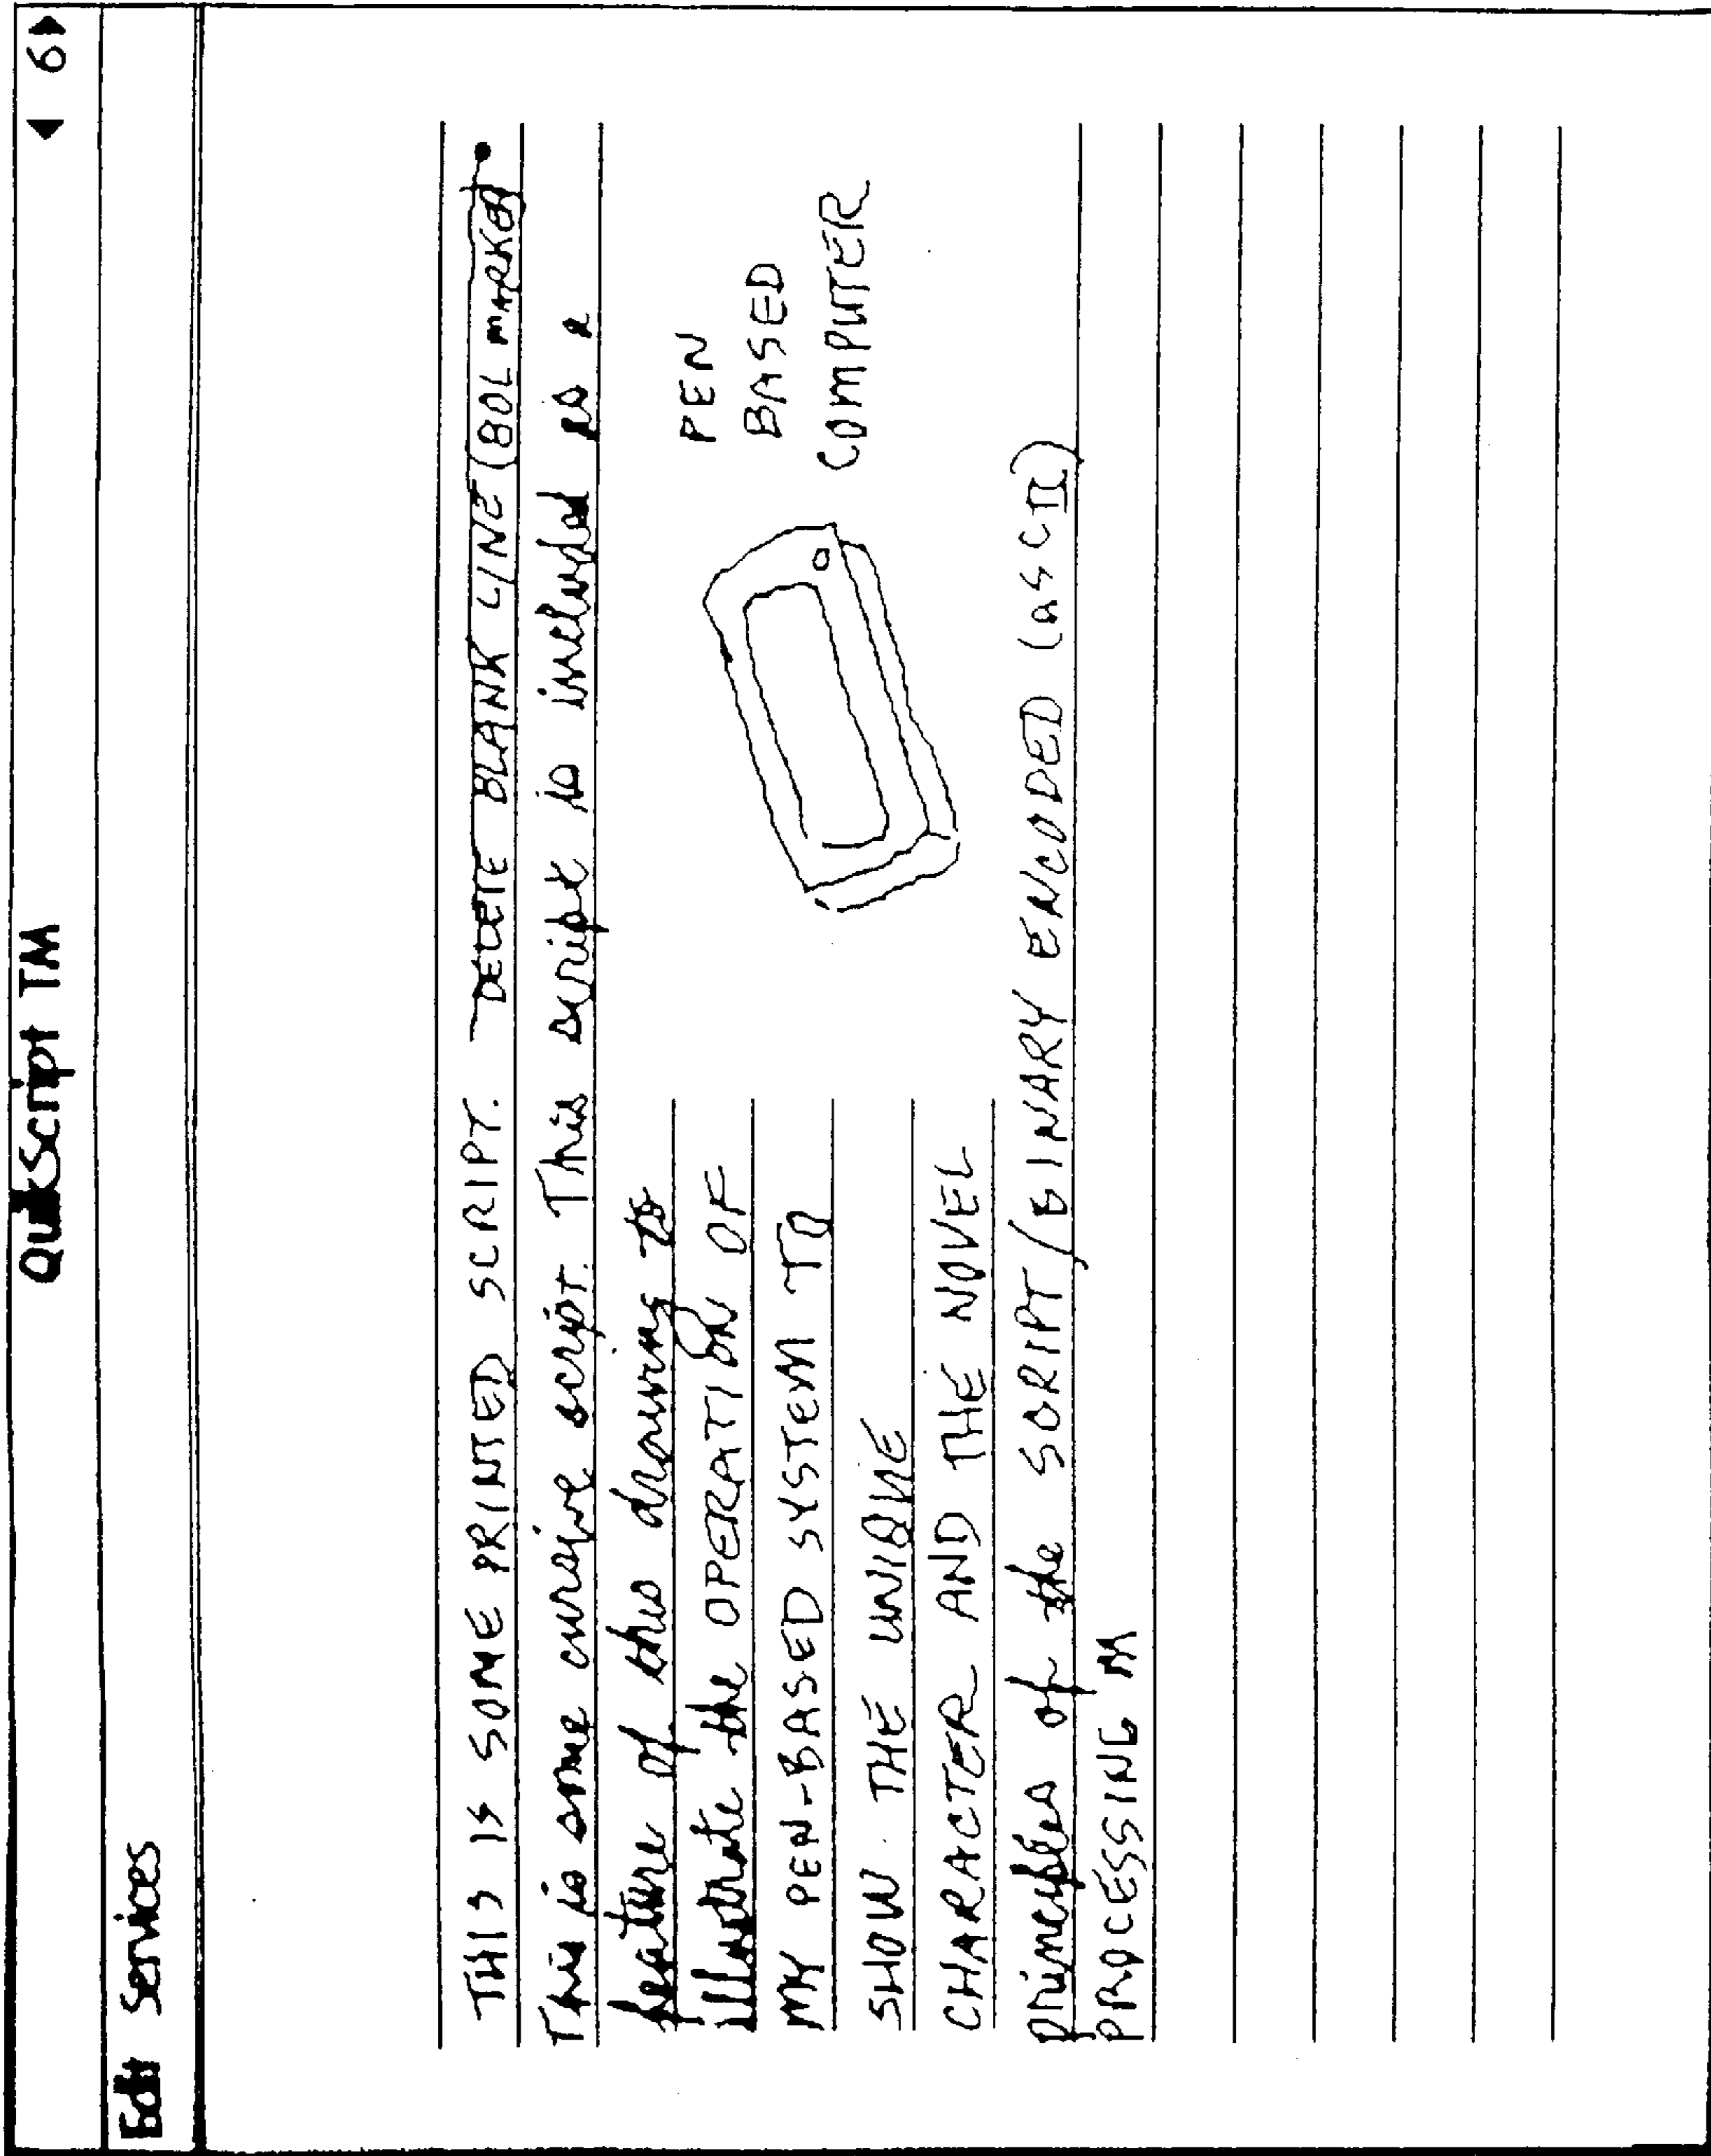 QuikScript TM ◀ 6▶
Edit Services
THIS IS SOME PRINTED SCRIPT. DELETE BLANK LINE (BOL MARKER
This is some cursive script. This script is included as a
feature of this drawing to
illustrate the OPERATION OF
MY PEN-BASED SYSTEM TO
SHOW THE UNIQUE
CHARACTER AND THE NOVEL
PEN
BASED
COMPUTER
principles of the SCRIPT/BINARY ENCODED (ASCII)
PROCESSING M